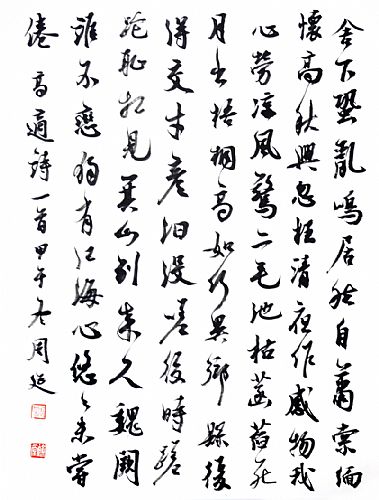 舍下蛩亂鳴居然自蕭索緬
懷高秋興忽枉清夜作感物我
心勞涼風驚二毛池枯菡萏死
月出梧桐高如何異鄉縣復
得交才彥汩沒嗟後時蹉
跎恥相見箕山別來久魏闕
誰不戀獨有江海心悠〻未嘗
倦 高適詩一首甲午冬周延